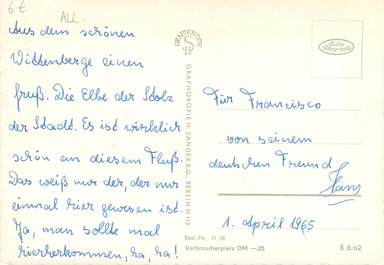 6 t
ALL.
Aus dem schönen
Wittenberge einen
Gruß. Die Elbe der Stolz
der Stadt. Es ist wirklich
schön an diesem Fluß.
Das weiß nur der, der nur
einmal hier gewesen ist.
Ja, man sollte mal
hierherkommen, ha, ha!
GRAPHOKOPIE
GRAPHOKOPIE H. SANDER K.G., BERLIN N 113
Best.-Nr. H 26
Verbraucherpreis DM —,25
Für Francisco
von seinem
deutschen Freund
Hans
1. April 1965
B 8/62